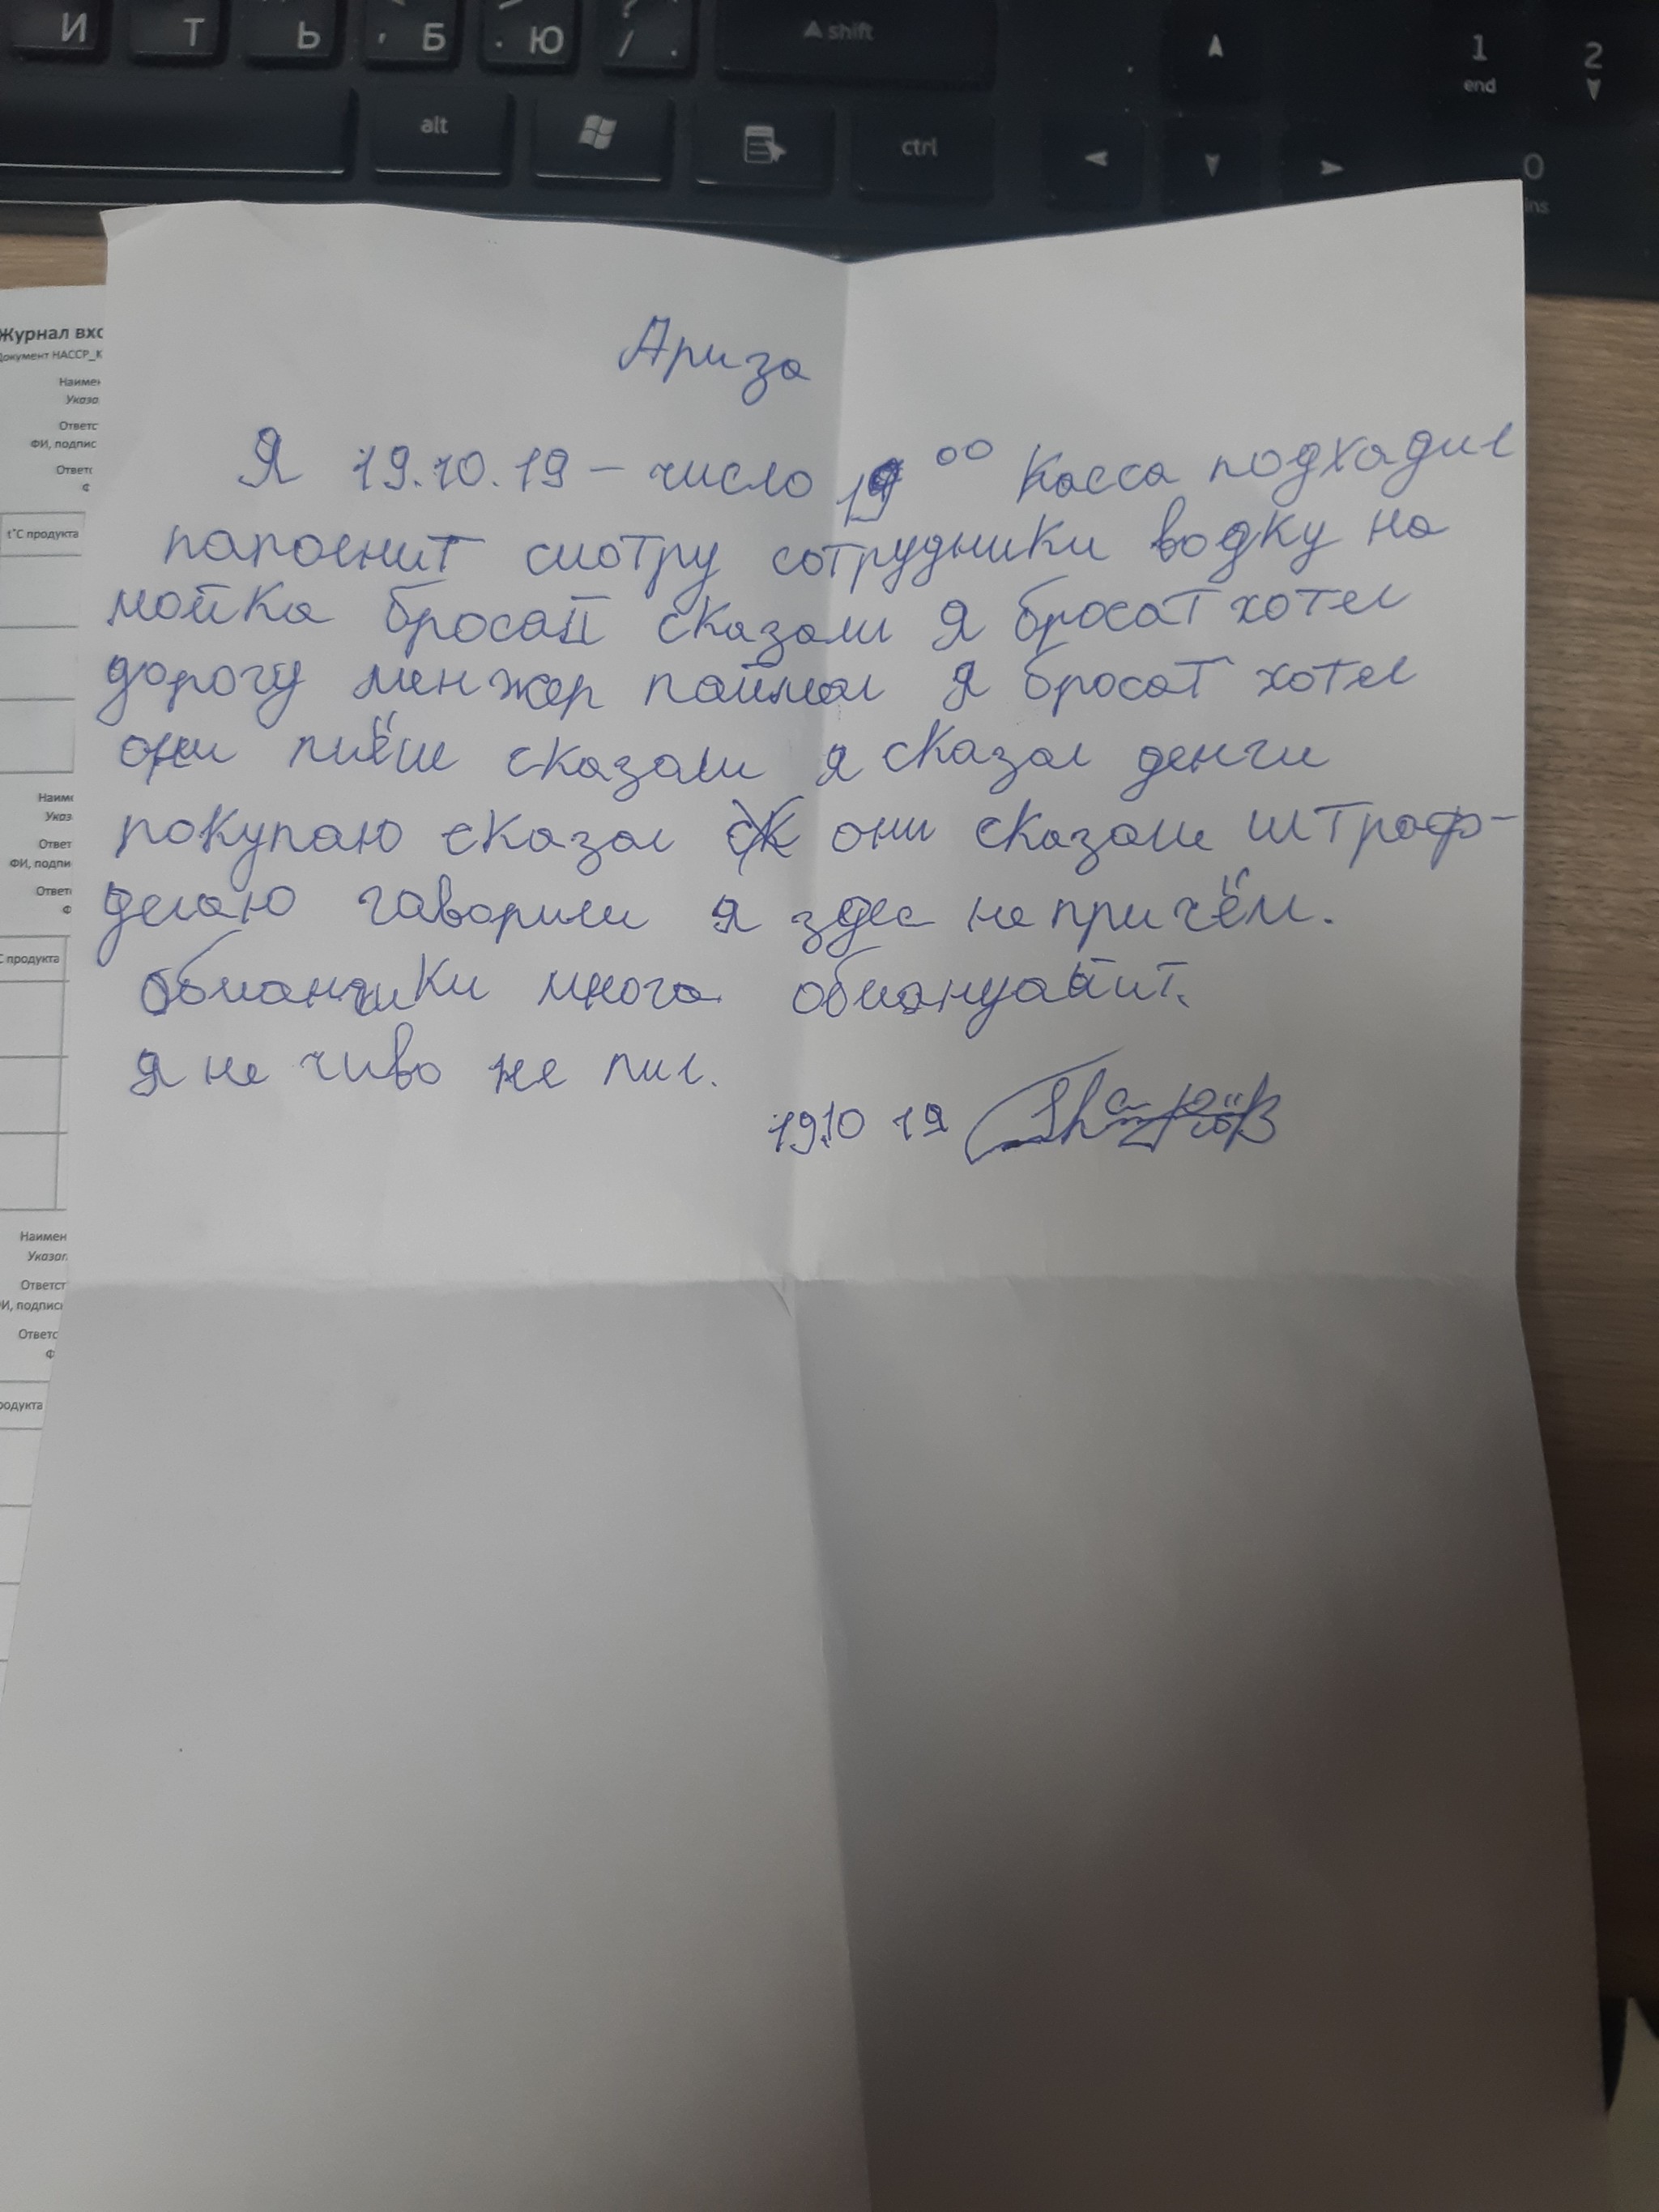 И
Т
Ь
, Б
. Ю
? / .
shift
1 end
2
alt
ctrl
0 ins
Журнал вхо
Документ НАССР_К
Наимен
Указа
Ответс
ФИ, подпис
Ответс
Ф
t°C продукта
Наимен
Указ
Ответ
ФИ, подпи
Ответ
Ф
C продукта
Наимен
Указат
Ответст
И, подпис
Ответс
Ф
родукта
Ариза
Я 19.10.19 – число 19 00 Касса подхадил
папоснит смотру сотрудники водку на
мойка бросай сказали я бросат хотел
дорогу менжер паймал я бросат хотел
они пиёш сказали я сказал денги
покупаю сказал они сказали штраф-
делаю гаворили я здес не причём.
обманчики много обмануайит.
я не чиво не пил.
19.10 19